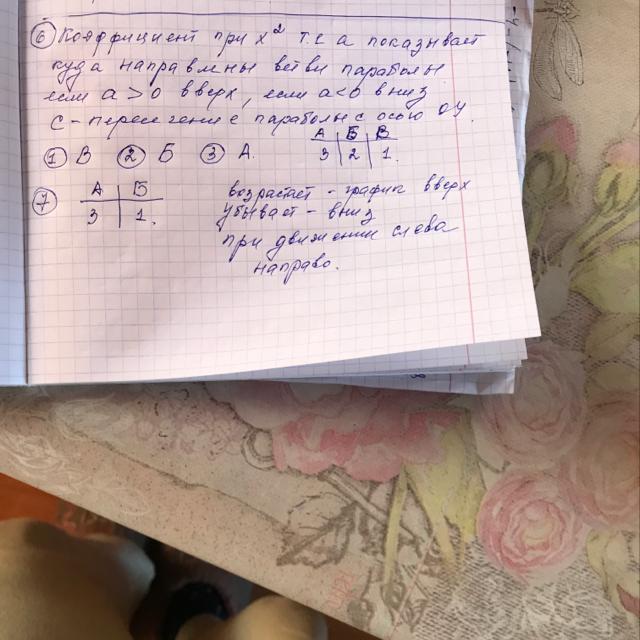 ⑥ Коэффициент при x² т.е а показывает
куда направлены ветви параболы
если а > 0 вверх, если а < 0 вниз
С - пересечение параболы с осью оу.
① В ② Б ③ А.
А Б В
3 2 1.
⑦ А Б
3 1.
возрастает - график вверх
убывает - вниз
при движении слева
направо.